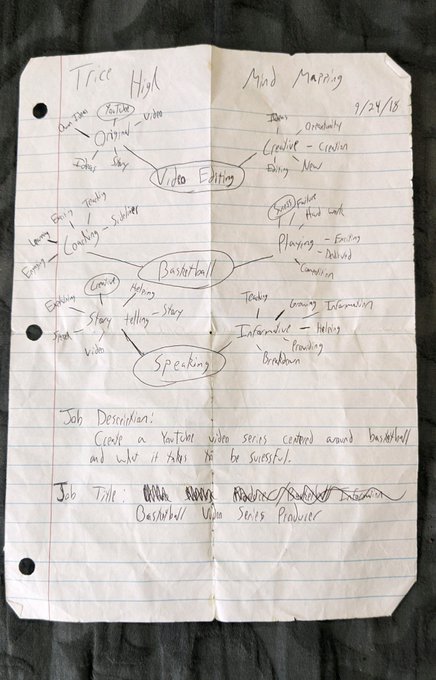 Trice High Mind Mapping
9/24/18
Own Ideas YouTube Video
Original
Ideas Story
Ideas Oppertunity
Creative Creation
Editing New
Video Editing
Teaching
Exciting Sideliner
Learning Coaching
Enjoying
Sucess Failure
Hard work
Playing Exciting
Dedicated
Competition
Basketball
Creative Helping
Explaining
Story telling Story
Speech
Video
Teaching Growing Information
Informative Helping
Providing
Breakdown
Speaking
Job Description:
Create a YouTube video series centered around basketball
and what it takes to be sucessful.
Job Title:
Basketball Video Series Producer